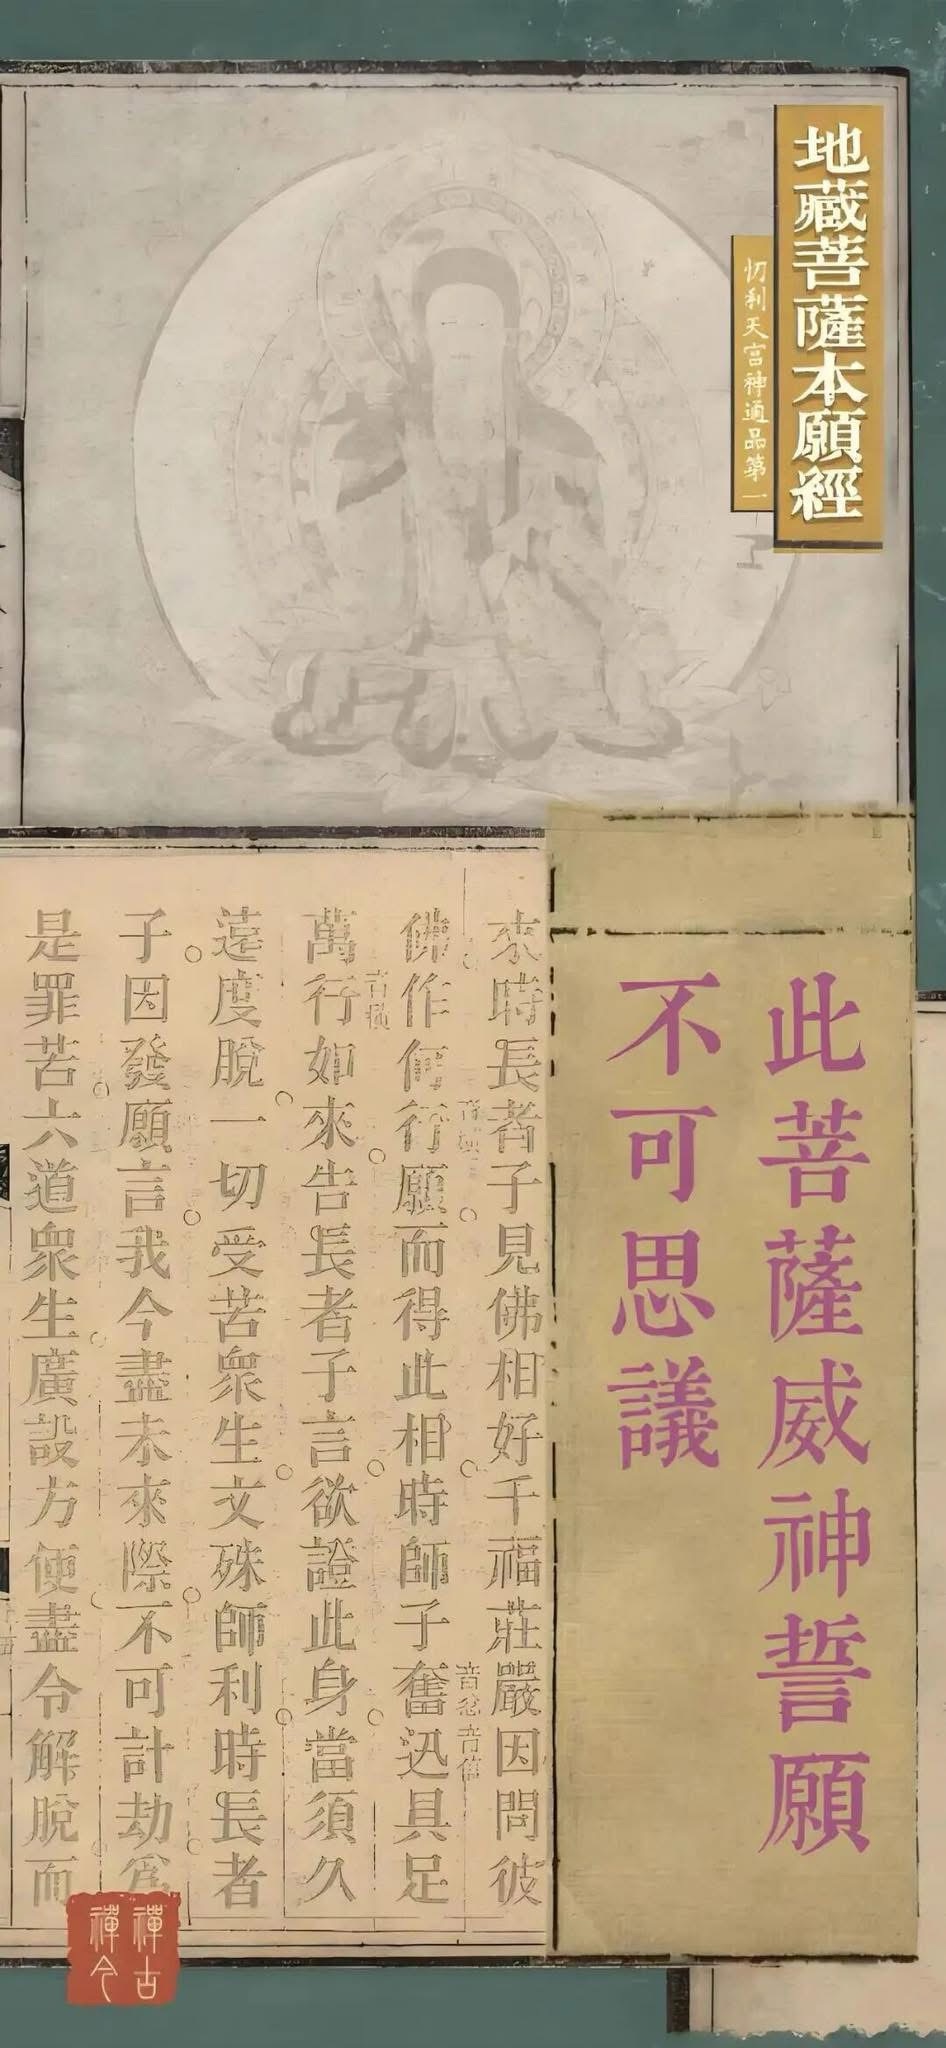 地藏菩薩本願經
忉利天宮神通品第一
此菩薩威神誓願
不可思議
來時長者子見佛相好千福莊嚴因問彼
佛作何行願而得此相時師子奮迅具足
萬行如來告長者子言欲證此身當須久
遠度脫一切受苦眾生文殊師利時長者
子因發願言我今盡未來際不可計劫為
是罪苦六道眾生廣設方便盡令解脫而
禪古
禪今